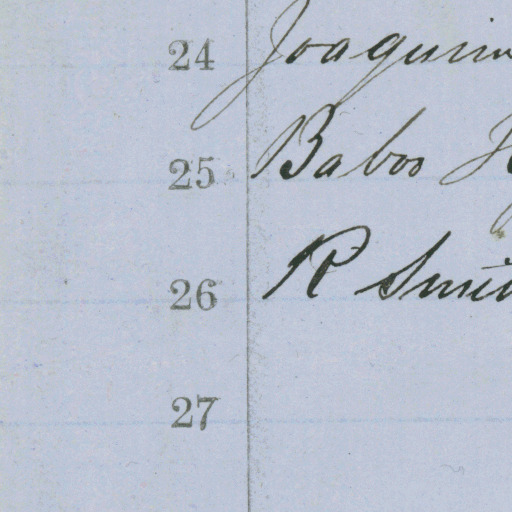 24 Joaquin
25 Babos
26 R Smit
27